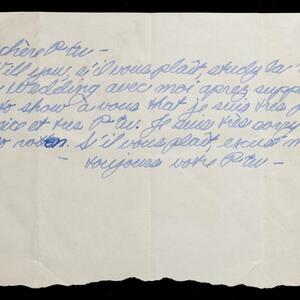 chère Ptu -
Will you, s'il vous plaît, study la
Wedding avec moi après supp
to show à vous that je suis très
et très Ptu. Je suis très sorry
so rotten. S'il vous plaît, excuse m
- toujours votre Ptu -